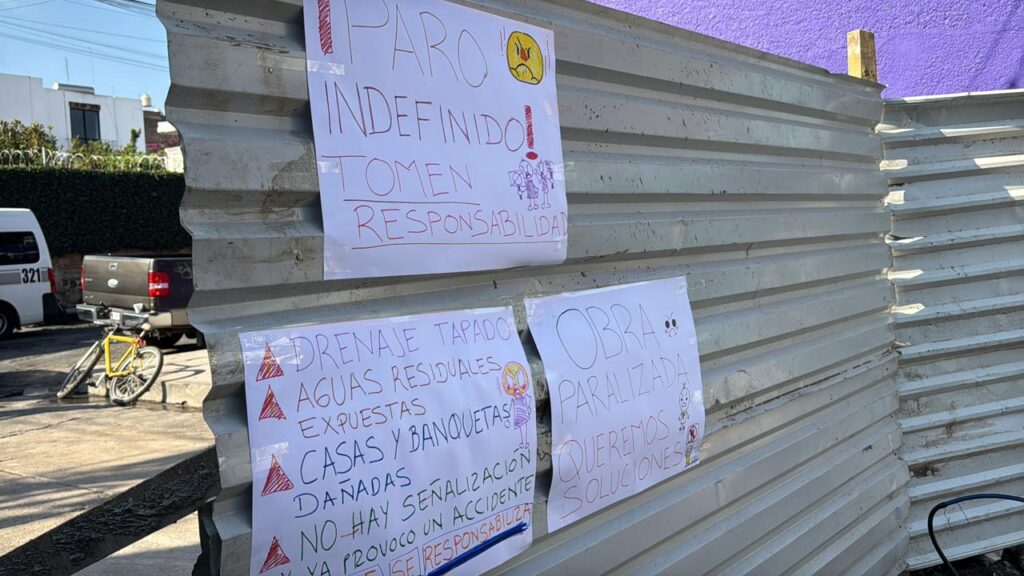 ¡PARO
INDEFINIDO!
TOMEN
RESPONSABILIDAD
DRENAJE TAPADO
AGUAS RESIDUALES
EXPUESTAS
CASAS Y BANQUETAS
DAÑADAS
NO HAY SEÑALIZACIÓN
Y YA PROVOCO UN ACCIDENTE
SE RESPONSABILIZA
OBRA
PARALIZADA
QUEREMOS
SOLUCIONES
321